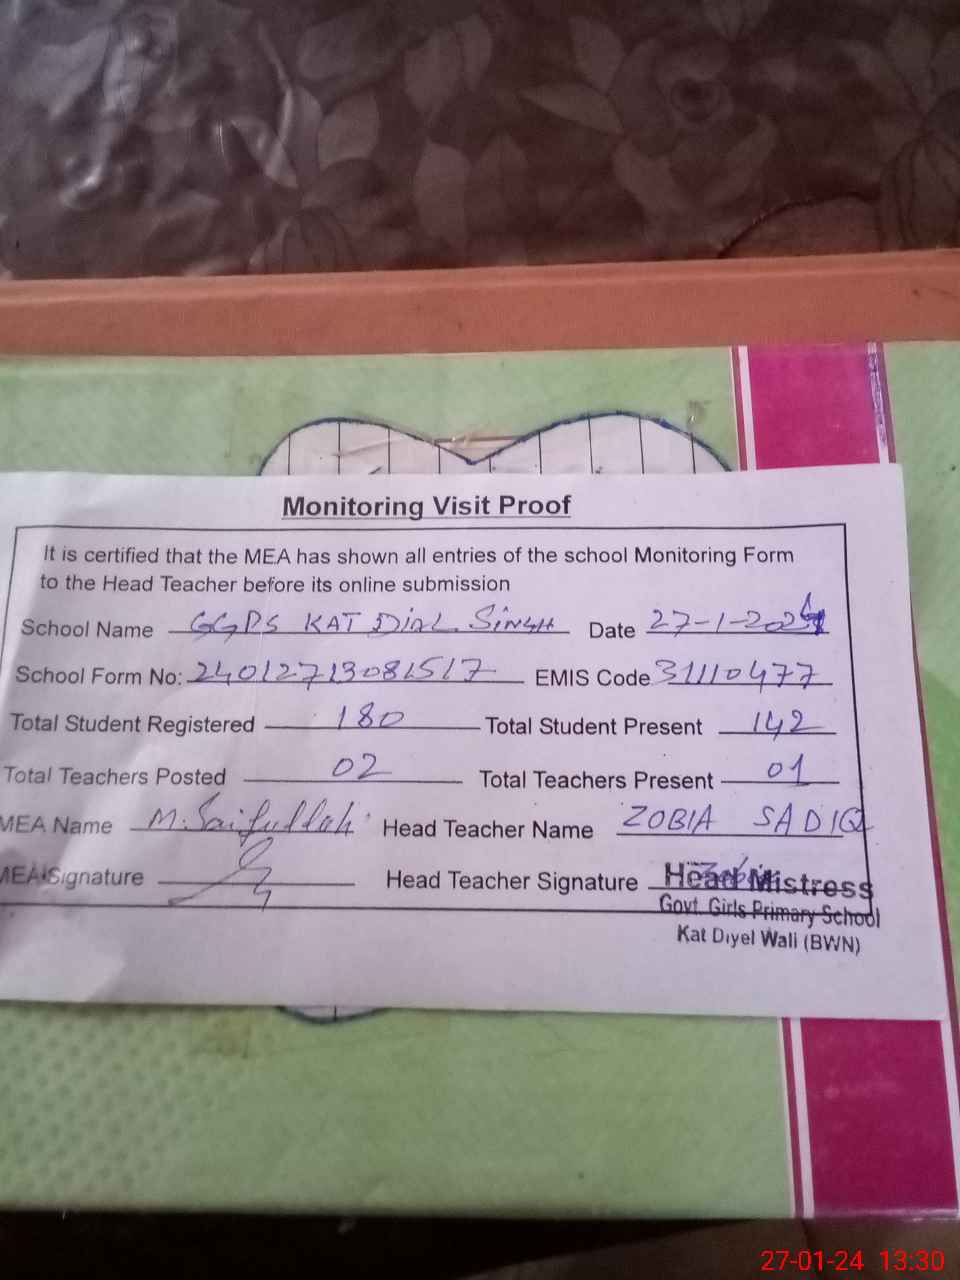 Monitoring Visit Proof
It is certified that the MEA has shown all entries of the school Monitoring Form
to the Head Teacher before its online submission
School Name GGPS KAT DIAL SINGH Date 27-1-2024
School Form No: 24012713081517 EMIS Code 31110477
Total Student Registered 180 Total Student Present 142
Total Teachers Posted 02 Total Teachers Present 01
MEA Name M. Saifullah Head Teacher Name ZOBIA SADIQ
MEA Signature Head Teacher Signature
Head Mistress
Govt. Girls Primary School
Kat Diyel Wali (BWN)
27-01-24 13:30